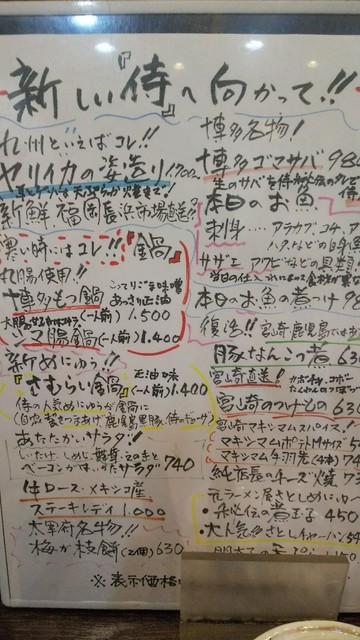 新しい『侍』へ向かって!!
九州といえばコレ!!
ヤリイカの姿造り 1700
新鮮 福岡長浜市場直送!!
寒い時にはコレ!!『鍋』
丸腸使用!!
博多もつ鍋 こってりごま味噌
あっさり正油
(一人前) 1.500
腸鍋(一人前) 1.400
新めにゅう!!
『さむらい鍋』正油味 (一人前) 1.400
侍の人気めにゅうが鍋に
あたたかいサラダ!
しいたけ しめじ 舞茸 エのきと
ベーコンが サラダ 740
牛ロース・メキシコ産
ステーキレディ 1.000
太宰府名物!!
梅が枝餅(2個) 630
※表示価格
博多名物!
博多ゴマサバ 98
本日のお魚
刺身… アラカブ、コチ、ア
サザエ アワビなどの貝類
本日のお魚の煮つけ 9
復活!! 宮崎・鹿児島
豚なんこつ煮 63
宮崎直送!
宮崎のつけもの 63
宮崎マキシマムスパイス!
マキシマムポテトMサイズ 5
マキシマム手羽先(4本) 74
純店長のチーズ焼 73
元ラーメン屋さとしめにゅ
・秘伝の煮玉子 450
・大人気さとしチャーハン 5